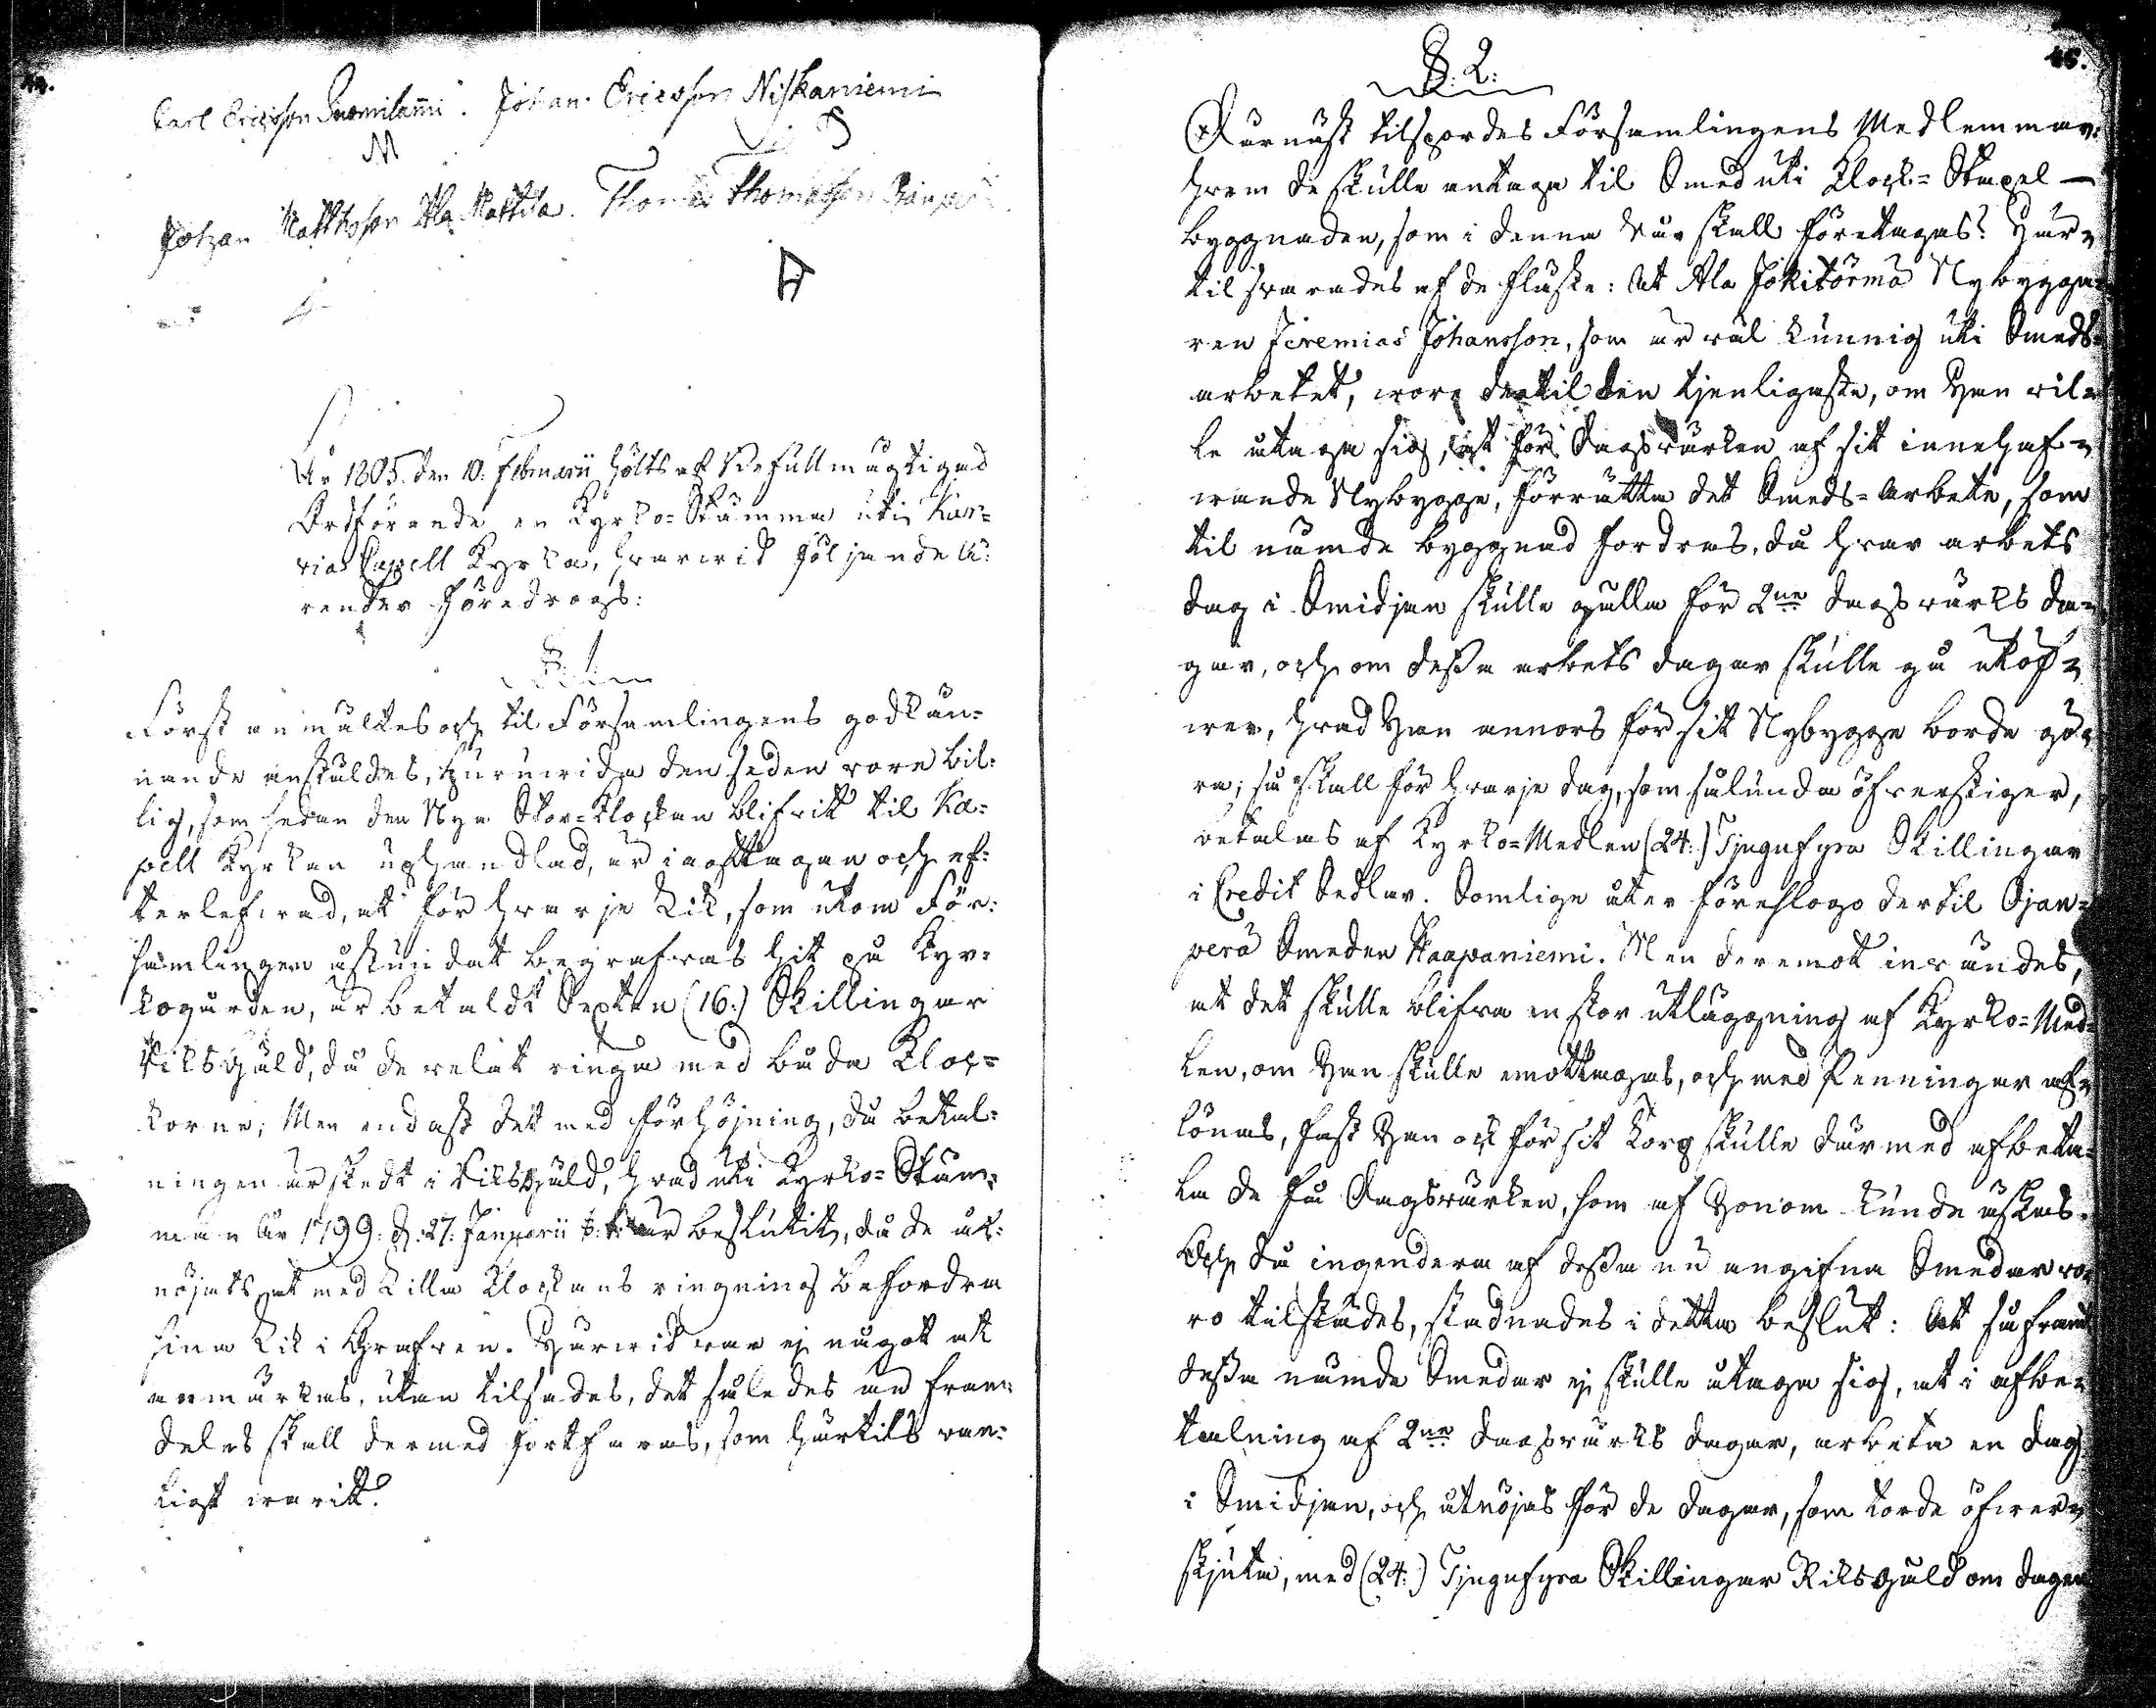 44.
Carl Ericsson Suomilammi. Johan Ericsson Niskaniemi
M
Johan Matthsson Ala Mattila. Thomas Thomasson
År 1805. den 10. Februarii hölts af Befullmägtigad
Ordförande en Kyrko-Stämma uti Kar-
via Capell Kyrka, hvarvid följande Ä-
render föredrogs:
§. 1.
Först anmältes och til Församlingens godkän-
nande anstäldes, huruvida den seden vore bil-
lig, som sedan den Nya Stor-Klockan blifvit til Ka-
pell Kyrkan uphandlad, är iagttagen och ef-
terlefvad, at för hvarje Lik, som utom För-
samlingen åstundat begrafvas hit på Kyr-
kogården, är betaldt Sexton (16.) Skillingar
Riksgäld, då de velat ringa med båda Kloc-
korne; Men endast det med förhöjning, då betal-
ningen är skedt i Riksgäld, hvad uti Kyrko-Stäm-
man År 1799. d. 27. Januarii är beslutit, då de åt-
nöjats at med Lilla Klockans ringning befordra
sina Lik i Grafven. Härvid var ej något at
anmärkas, utan tilsades, det således än fram-
deles skall dermed fortfaras, som härtils van-
ligt varit.
45.
§. 2.
Därnäst tilspordes Församlingens Medlemmar
hvem de skulle antaga til Smed uti Klock-Stapel-
byggnaden, som i denna Vår skall företagas? Här-
til svarades af de fläste: At Ala Jokitörmä Nybygga-
ren Jeremias Johansson, som är väl kunnig uti Smeds-
arbetet, vore dertil den tjenligaste, om Han vil-
le åtaga sig, at för Dagsvärken af sit innehaf-
vande Nybygge, förrätta det Smeds-Arbete, som
til nämde byggnad fordras, då hvar arbets
dag i Smidjan skulle gälla för 2ne dagsvärks da-
gar, och om dessa arbets dagar skulle gå utöf-
ver, hvad Han annors för sit Nybygge borde gö-
ra; så skall för hvarje dag, som sålunda öfverstiger,
betalas af Kyrko-Medlen (24.) Tjugufyra Skillingar
i Credit Sedlar. Somlige åter föreslogo dertil Ojan-
perä Smeden Haapaniemi. Men deremot invändes,
at det skulle blifva en stor utläggning af Kyrko-Med-
len, om Han skulle emottagas, och med Penningar af-
lönas, fast Han ock för sit Torp skulle därmed afbeta-
la de få Dagsvärken, som af Honom kunde äskas.
Och då ingendera af dessa nu angifna Smedar vo-
ro tilstädes, stadnades i detta beslut: At såframt
dessa nämde Smedar ej skulle åtaga sig, at i afbe-
talning af 2ne dagsvärks dagar, arbeta en dag
i Smidjan, och åtnöjas för de dagar, som torde öfver-
skjuta, med (24.) Tjugufyra Skillingar Riksgäld om dagen